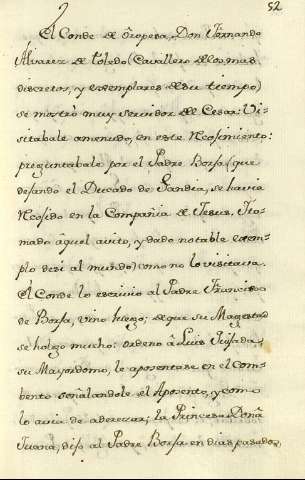 52
El Conde de Oropesa, Don Fernando
Alvarez de Toledo (Cavallero de los mas
discretos, y exemplares de su tiempo)
se mostrò muy servidor de Cesar: Vi-
sitabale amenudo, en este Recosimiento:
preguntabale por el Padre Borja (que
dejando el Ducado de Gandia, se havia
Recosido en la Compañia de Jesus. To-
mado âquel avito, y dado notable exem-
plo de si al mundo) como no lo visitava.
El Conde lo escrivio al Padre Francisco
de Borja, vino luego; de que su Magestad
se holgo mucho: ordeno â Luis Quijada,
su Mayordomo, le aposentase en el Com-
bento señalandole el Aposento, y como
lo avia de aderezar; la Princesa Doñâ
Juana, dijo al Padre Borja en dias pasados,